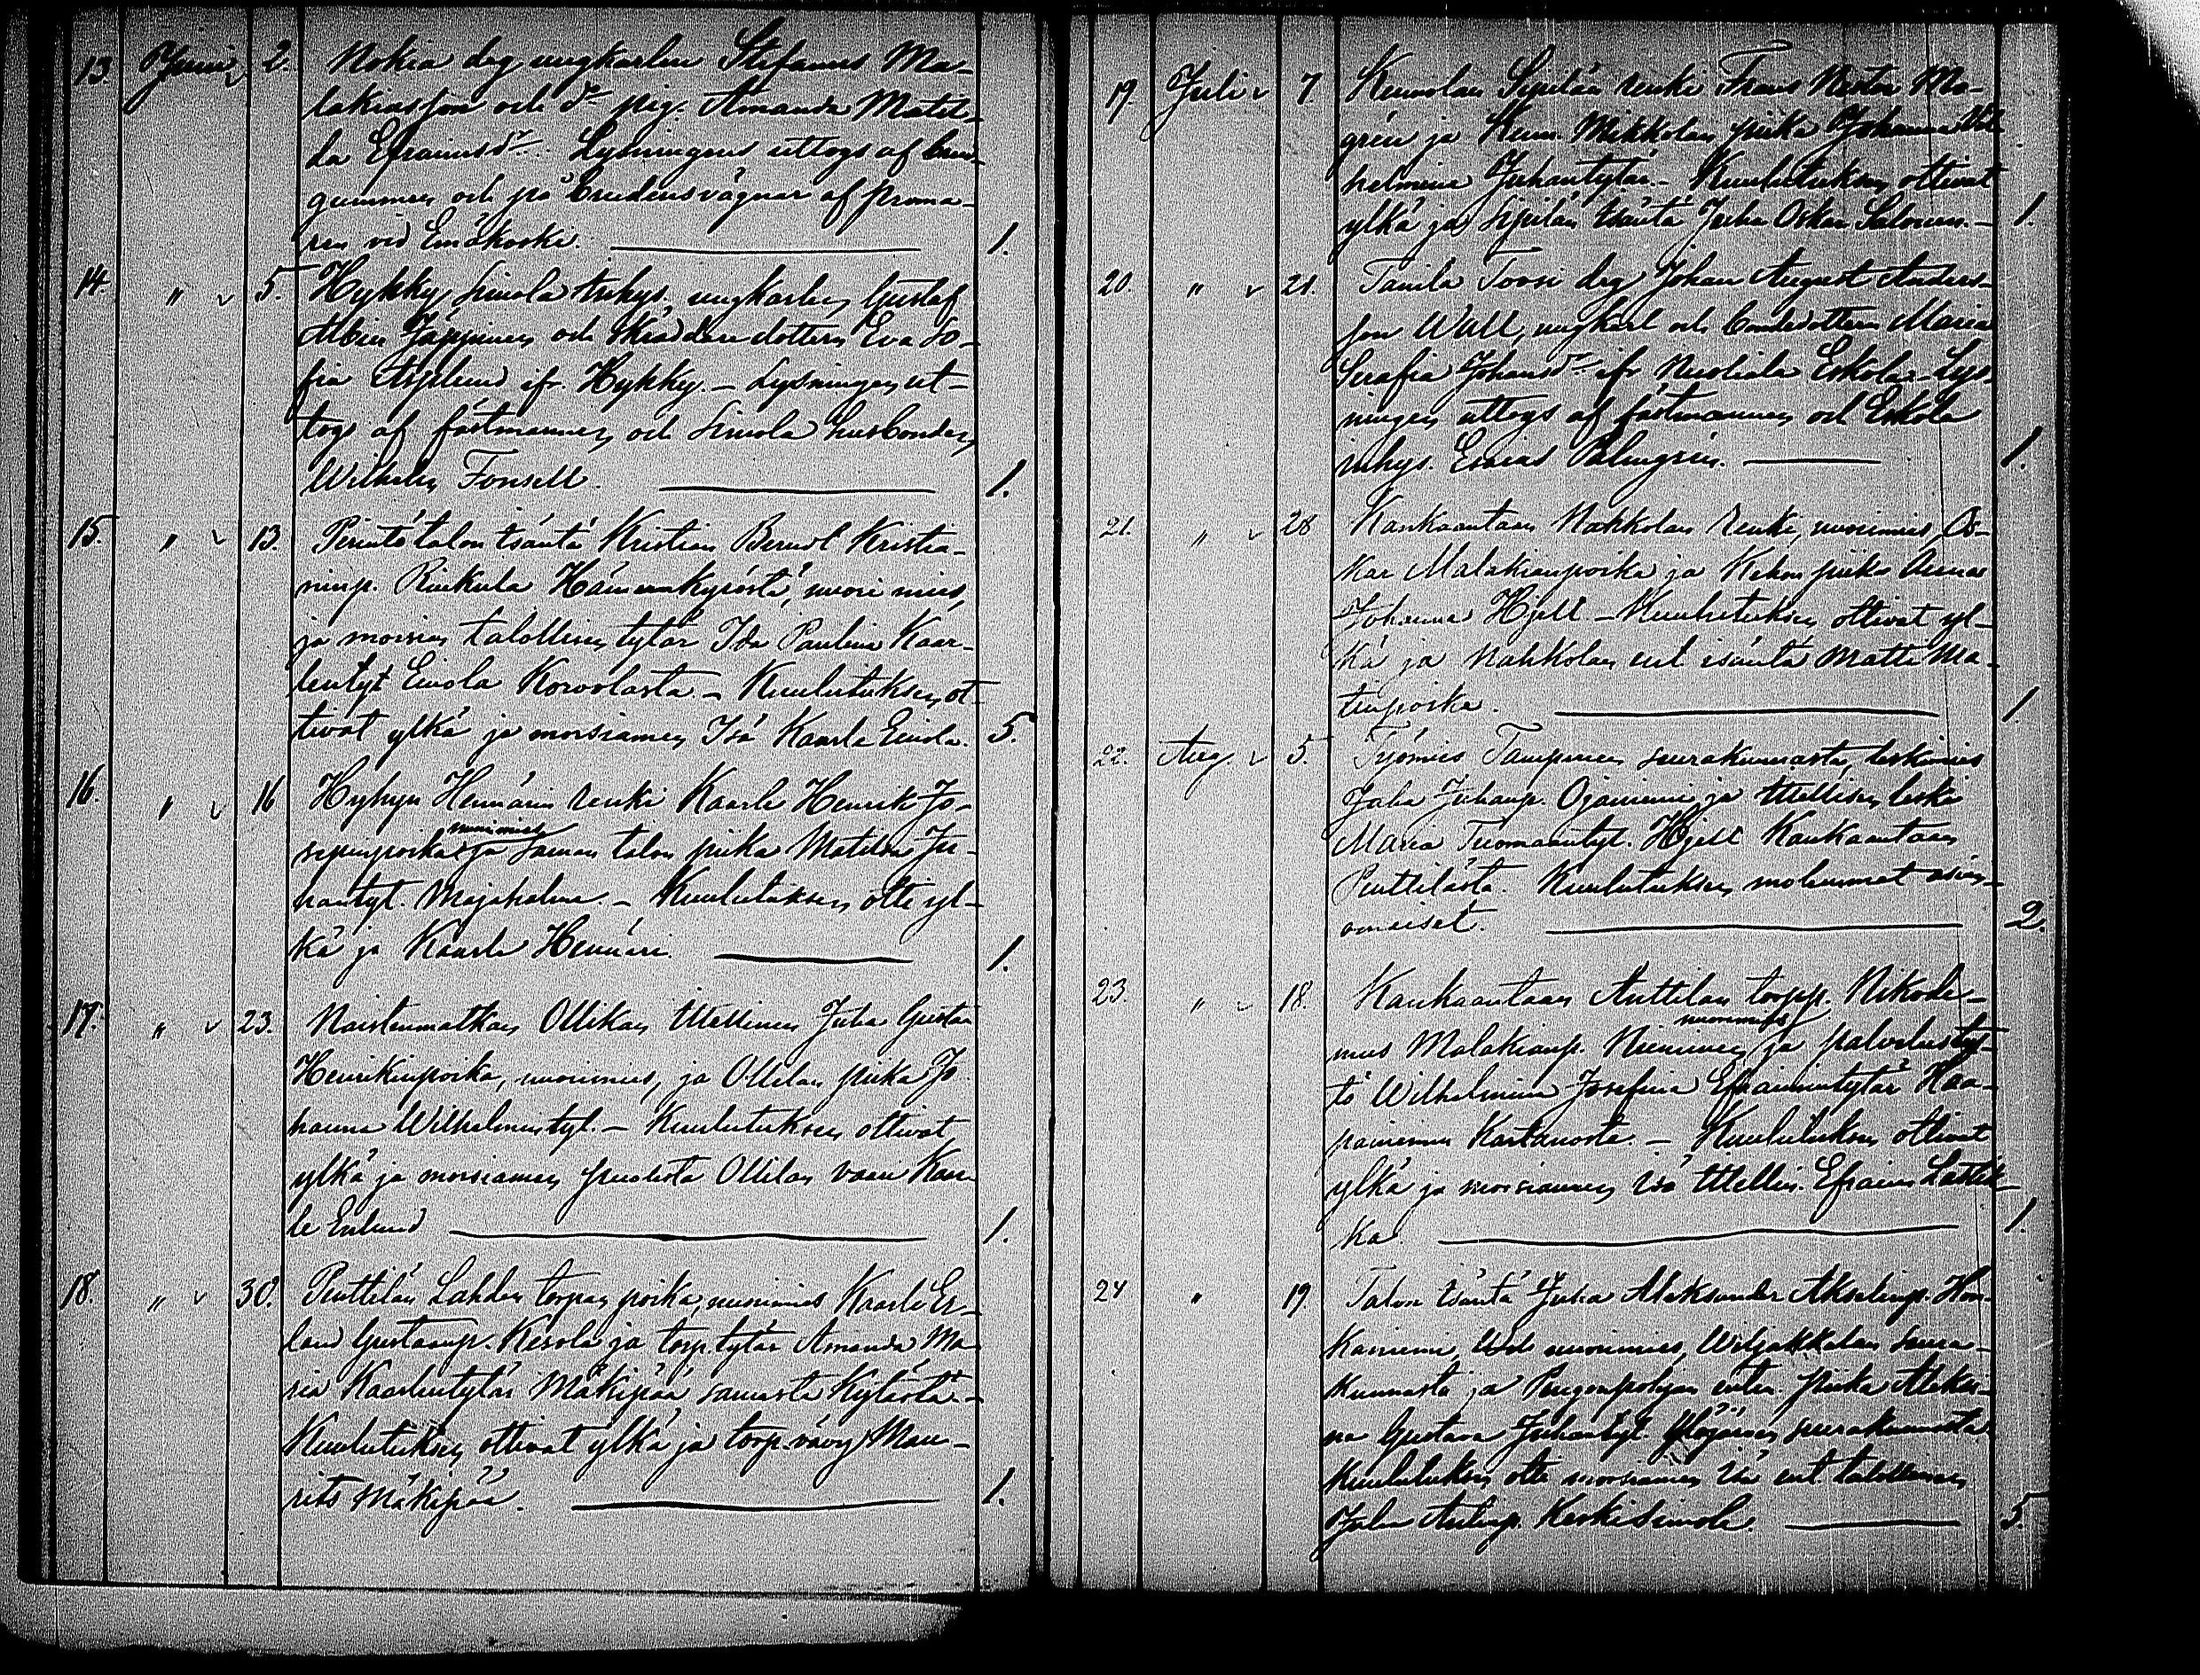 13. Juni v 2. Nokia drg ungkarlen Stefanus Ma-
lakiasson och d:o pig. Amanda Matil-
da Efraimsdr. Lysningens uttogs af brud-
gummen och på brudens vägnar af
ren vid Emäkoski. 1.
14. " v 5. Hykky Simola inhys. ungkarlen Gustaf
Albin Jäppinen och Skräddaredottern Eva So-
fia Asplund ifr. Hykky. - Lysningen ut-
togs af fästmannen och Simola husbonden
Wilhelm Fonsell. 1.
15. " v 13. Perintötalon isäntä Kristian Bernol Kristia-
ninp. Rinkula Hämeenkyröstä, nuori mies,
ja morsian talollisen tytär Ida Paulina Kaar-
lentyt Einola Korvolasta - Kuulutuksen ot-
tivat ylkä ja morsiamen Isä Kaarla Einola. 5.
16. " v 16 Hyhyn Heinärin renki Kaarle Henrik Jo-
nuorimies
sepinpoika ja saman talon piika Matilda Ju-
hantyt. Majahalme. - Kuulutuksen otti yl-
kä ja Kaarle Heinäri. 1.
17. " v 23. Naistenmatkan Ollikan itsellinen Juha Gustaa
Henrikinpoika, nuorimies, ja Ollilan piika Jo
hanna Wilhelmintyt. - Kuulutuksen ottivat
ylkä ja morsiamen puolesta Ollilan vaari Kaar
le Enlund 1.
18. " v 30. Penttilän Lahden torpan poika, nuorimies Kaarle Er-
land Gustaanp. Kesola ja torp. tytär Amanda Ma
ria Kaarlentytär Mäkipää samasta Kylästä. -
Kuulutuksen ottivat ylkä ja torp. vävy Mau-
rits Mäkipää. 1.
19. Juli v 7. Kunnolan Sipilän renki Frans Nestor Mo-
grén ja Kunn. Mikkolan piika Johanna Wil
helmina Juhantytär. - Kuulutuksen ottivat
ylkä ja Sipilän isäntä Juha Oskar Salonen. - 1.
20. " v 21. Tanila Toosi drg Johan August Anders-
son Wall, ungkarl och bondedottern Maria
Serafia Johansdr ifr Nuoliala Eskola - Lys-
ningen uttogs af fästmannen och Eskola
inhys. Esaias Palmgrén. 1.
21. " v 28 Kankaantaan Nahkolan renki, nuorimies, Os-
kar Malakianpoika ja Kehon piika Anna
Johanna Hjell. - Kuulutuksen ottivat yl-
kä ja Nahkolan ent isäntä Matti Ma-
tinpoika. 1
22. Aug. v 5. Työmies Tampereen seurakunnasta, leskimies
Juha Juhanp. Ojaniemi ja itsellisen leski
Maria Tuomaantyt. Hjell Kankaantaan
Penttilästä. Kuulutuksen molemmat asian-
omaiset. 2.
23. " v 18. Kankaantaan Anttilan torpp. Nikode-
nuorimies
mus Malakianp. Nieminen ja palvelusty-
tö Wilhelmina Josefina Efraimintytär Haa-
paniemen Kartanosta. - Kuulutuksen ottivat
ylkä ja morsiamen isä itsellin. Efraim Lastik-
ka. 1.
24 " 19. Talon isäntä Juha Aleksander Akselinp. Hon-
kaniemi, nuorimies, Wiljakkalan seura-
kunnasta ja Pengonpohjan enten. piika Aleksi-
na Gustava Juhantyt. Ylöjärven seurakunnasta.
Kuulutuksen otti morsiamen Isä ent talollinen
Juha Antinp. Keskisimola. 5.